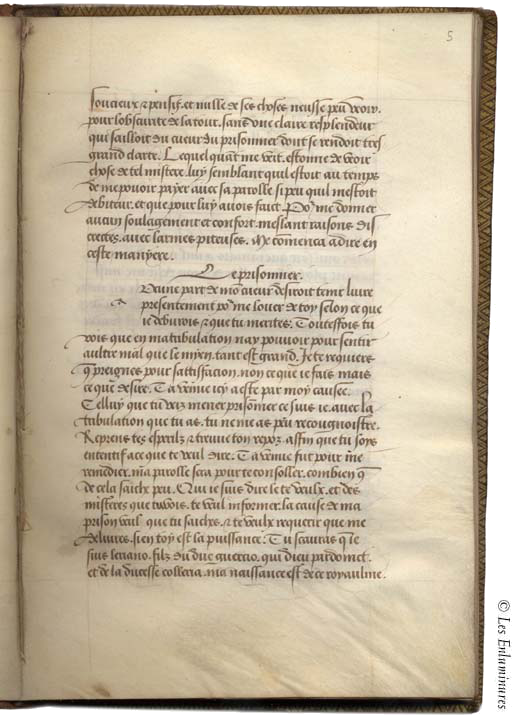 5
soucieux & pensif. et nulle de ses choses neusse peu veoir.
pour lobscurite de la tour. sans une claire resplendeur
qui sailloit du cueur du prisonnier dont se rendoit tres
grand clarte. Lequel quant me veit. estonne de veoir
chose de tel mistere. luy semblant quil estoit au temps
de me pouoir payer avec sa parolle si peu quil mestoit
debiteur. et que pour luy avois faict. Por me donner
aucun soulagement et confort. meslant raisons dis
crectes. avec larmes piteuses. Me comenca a dire en
ceste manyere.
Le prisonnier.
Daune part de mon cueur desiroit tenir livre
presentement por me louer de toy selon ce que
ie debvrois & que tu merites. Touteffois tu
vois que en ma tribulation nay pouvoir pour sentir
aultre mal que le myen. tant est grand. Je te requiers
q preignes pour sattisfacion. non ce que ie fais mais
ce que desire. Ta venue icy a este par moy causee.
Celluy que tu veiz mener prisonnier ce suis ie. avec la
tribulation que tu as. tu ne me as peu recougnoistre.
Reprens tes esperilz & treuve ton repoz. affin que tu soys
ententif a ce que te veul dire. Ta venue fut pour me
remedier. ma parolle sera pour te consoller. combien q
de cela saiche peu. Qui ie suis dire le te veulx. et des
misteres que tu vois. te veul informer. la cause de ma
prison veul que tu saiches. & te veulx requerir que me
delivres. si en toy est la puissance. Tu scauras q ie
suis leriano. filz du duc guercio. qui dieu pardoinct.
et de la ducesse colleria. ma naissance est de ce royaulme.
© Les Enluminures